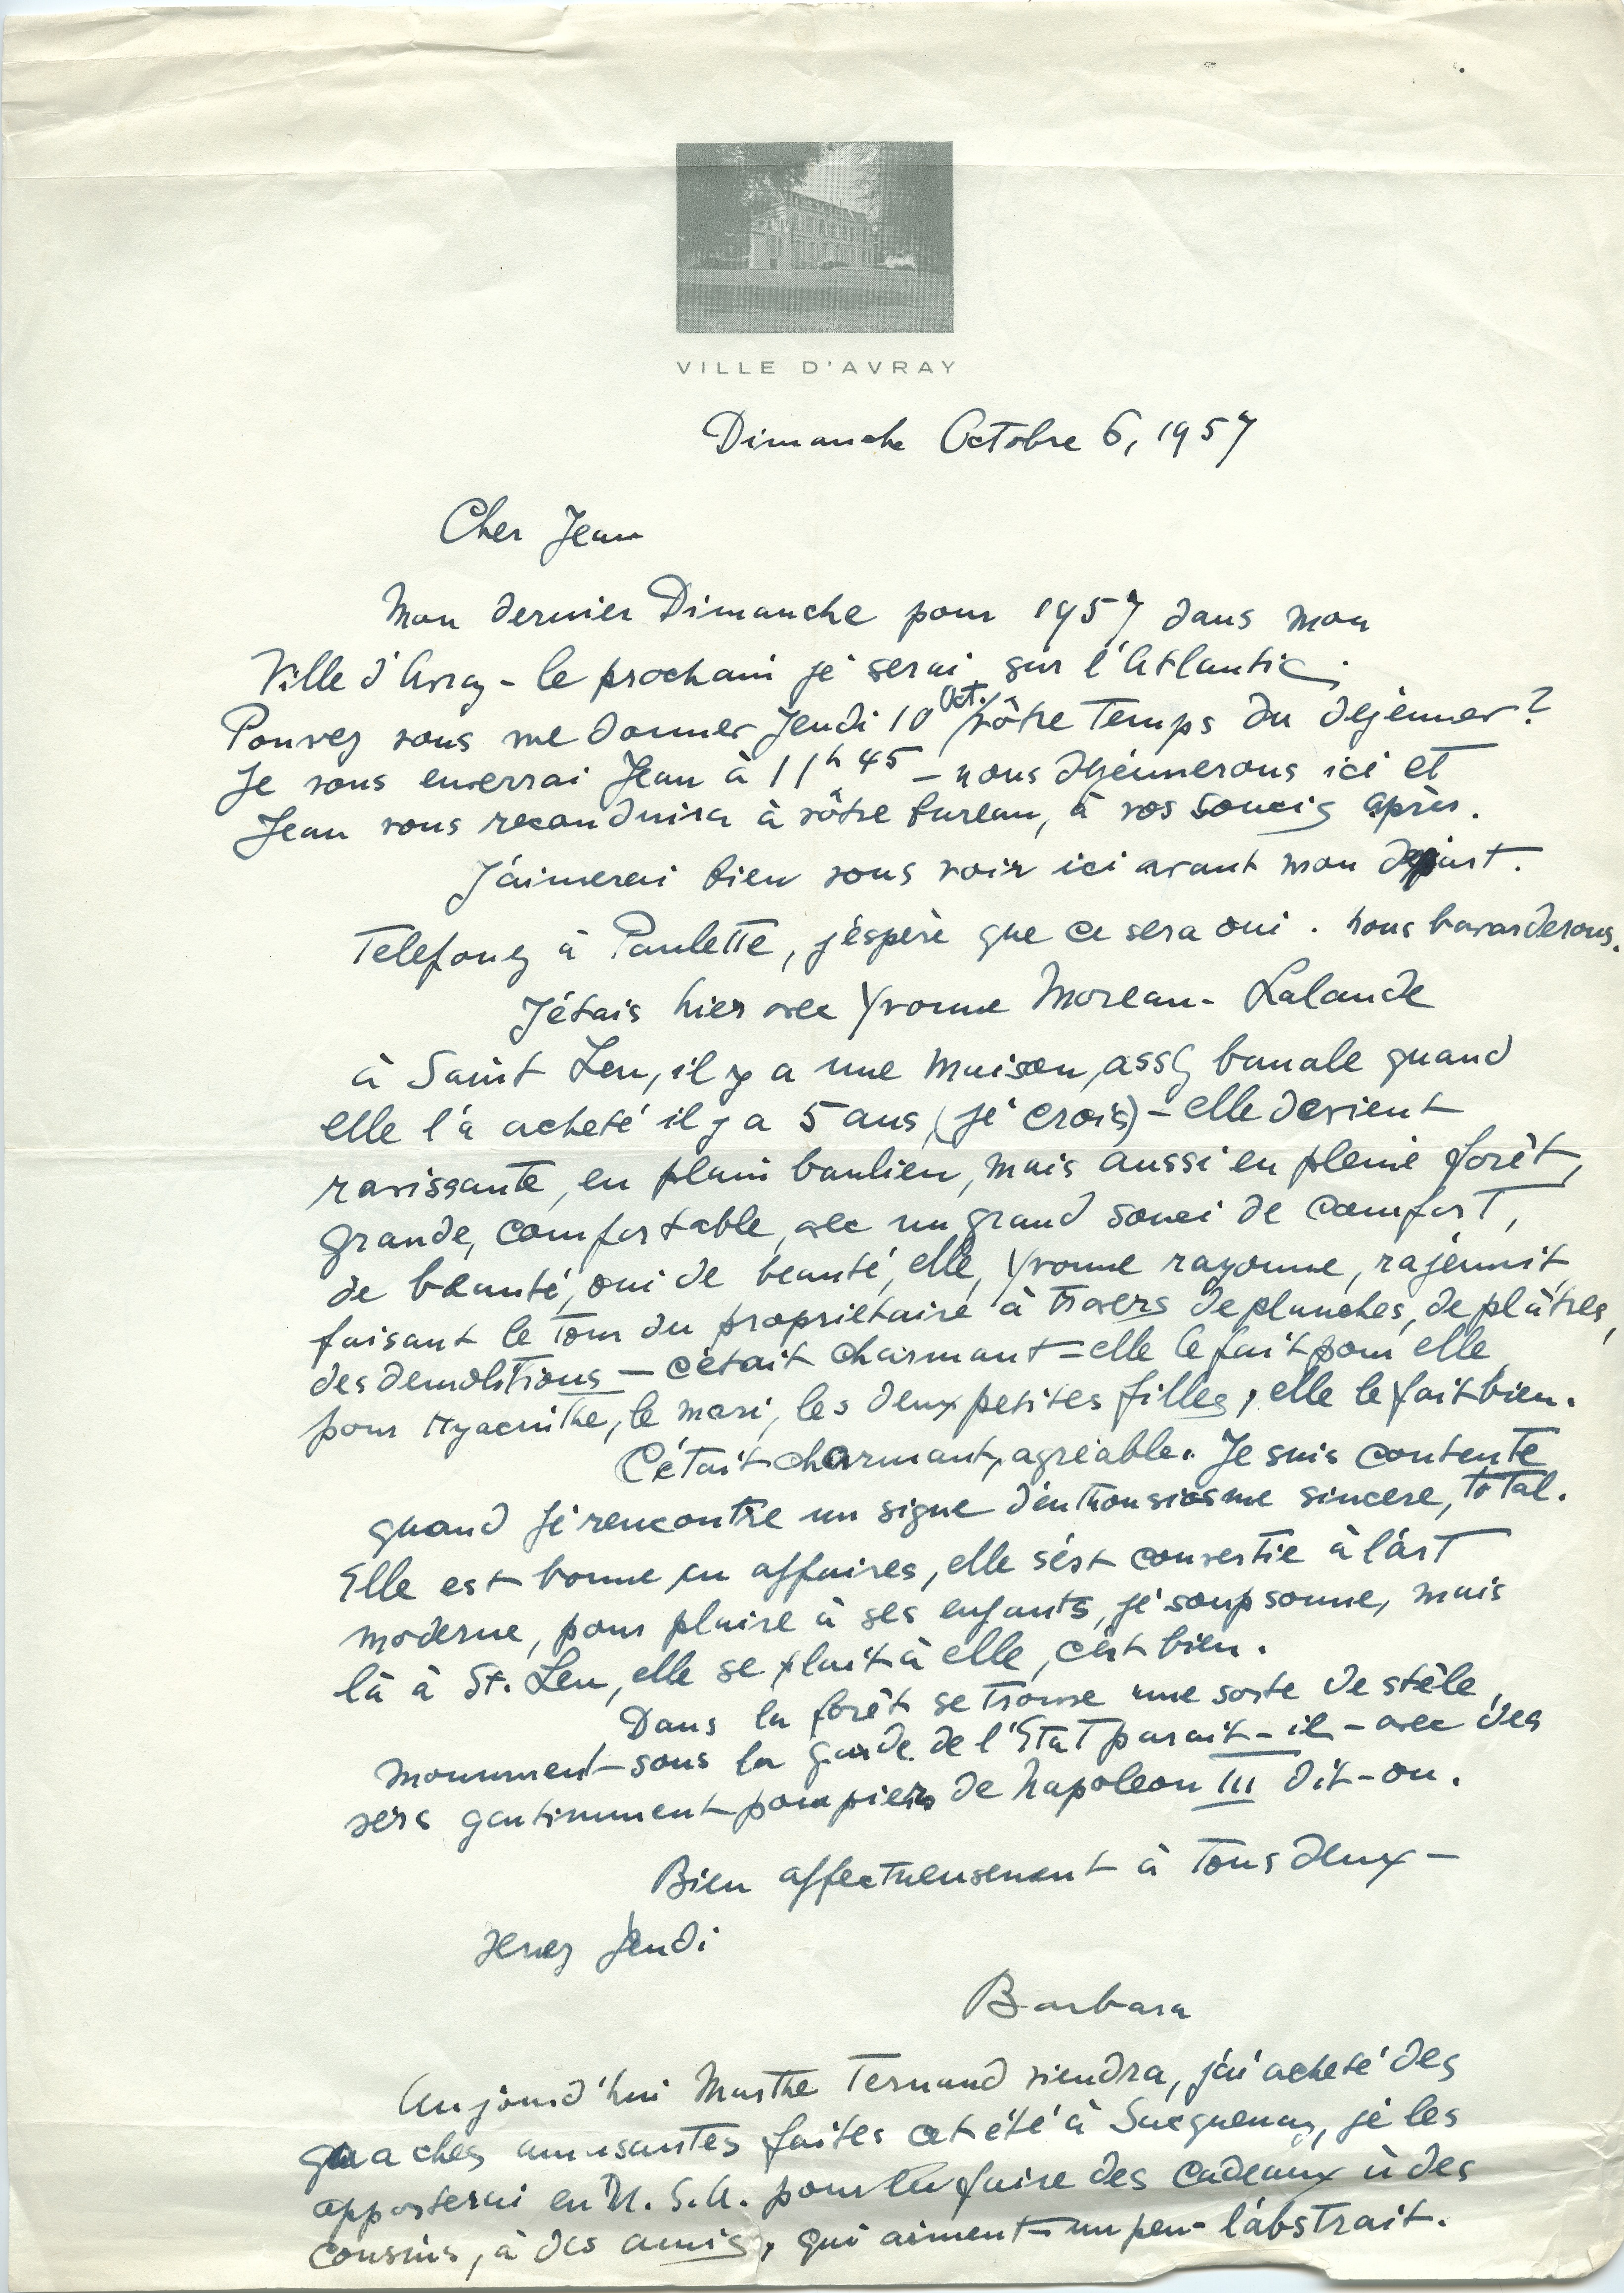 VILLE D'AVRAY
Dimanche Octobre 6, 1957
Cher Jean
Mon dernier Dimanche pour 1957 dans mon
Ville d'Avray - le prochain je serai sur l'Atlantic.
Pouvez vous me donner Jeudi 10 Oct. vôtre temps du dejeuner?
Je vous enverrai Jean à 11h 45 - nous dejeunerons ici et
Jean vous reconduira à vôtre bureau, à vos soucis après.
J'aimerai bien vous voir ici avant mon depart.
Telefonez à Paulette, j'éspère que ce sera oui. nous bavarderons.
J'étais hier avec Yvonne Moreau-Lalande
à Saint Leu, il y a une maison, assez banale quand
elle l'a acheté il y a 5 ans, (je crois) - elle devient
ravissante, en plain banlieu, mais aussi en pleine forêt,
grande, comfortable, avec un grand souci de comfort,
de beauté, oui de beauté, elle, Yvonne rayonne, rajeunit,
faisant le tour du proprietaire à travers de planches, de plâtres,
des demolitions - c'était charmant - elle le fait pour elle,
pour Hyacinthe, le mari, les deux petites filles, elle le fait bien.
C'était charmant, agréable. Je suis contente
quand je rencontre un signe d'enthousiasme sincere, total.
Elle est bonne en affaires, elle s'est convertie à l'art
moderne, pour plaire à ses enfants, je soupsonne, mais
là à St. Leu, elle se plait à elle, c'est bien.
Dans la forêt se trouve une sorte de stèle,
monument - sous la garde de l'Etat parait-il - avec des
vers gentimment pompiers de Napoleon III dit-on.
Bien affectueusement à tous deux -
Venez Jeudi
Barbara
Aujourd'hui Marthe viendra, j'ai acheté des
guaches amusantes faites cet été à Sacquenay, je les
apporterai en U.S.A. pour en faire des cadeaux à des
cousins, à des amis, qui aiment - un peu - l'abstrait.